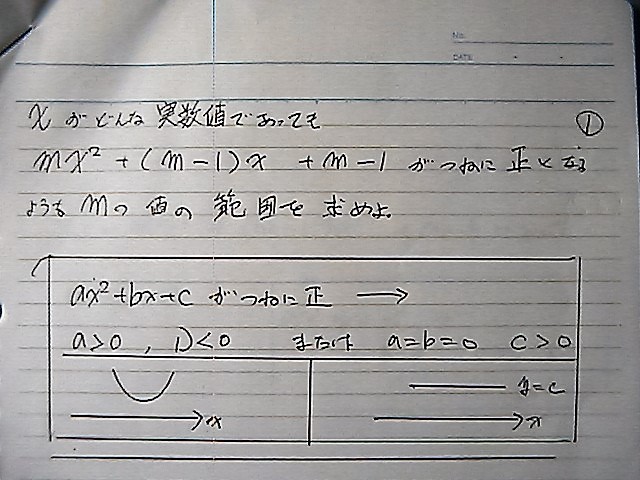 No.
DATE
xがどんな実数値であっても ①
mx² + (m-1)x + m-1 がつねに正となる
ようなmの値の範囲を求めよ。
ax²+bx+c がつねに正 →
a>0 , D<0 または a=b=0 c>0
y=c
x x